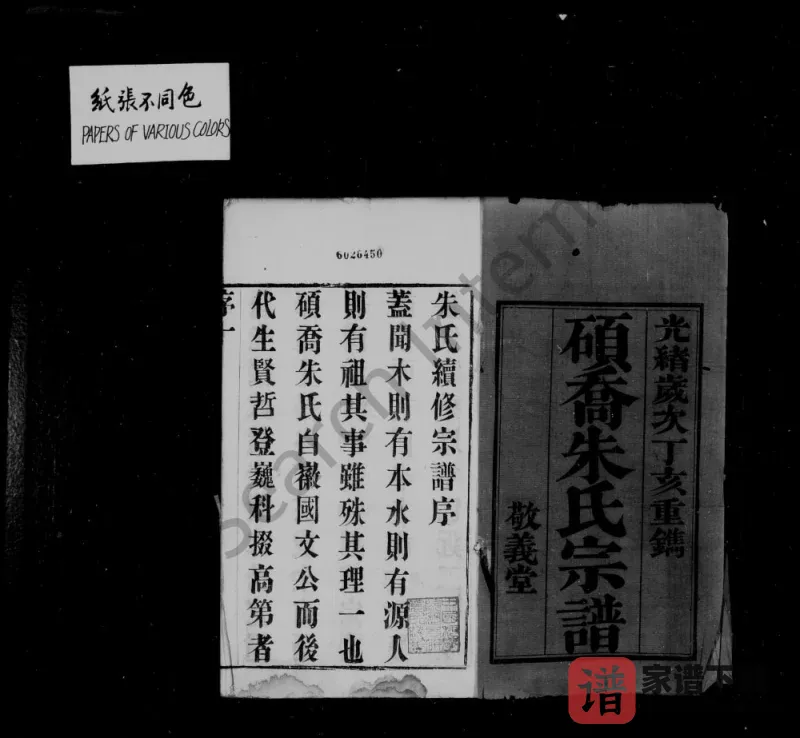 紙張不同色
PAPERS OF VARIOUS COLORS
光緒歲次丁亥重鐫
碩喬朱氏宗譜
敬義堂
6026450
朱氏續修宗譜序
蓋聞木則有本水則有源人
則有祖其事雖殊其理一也
碩喬朱氏自徽國文公而後
代生賢哲登巍科掇高第者
序一
Search Intern
谱
家谱下